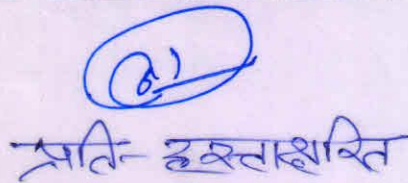 प्रति-हस्ताक्षरित